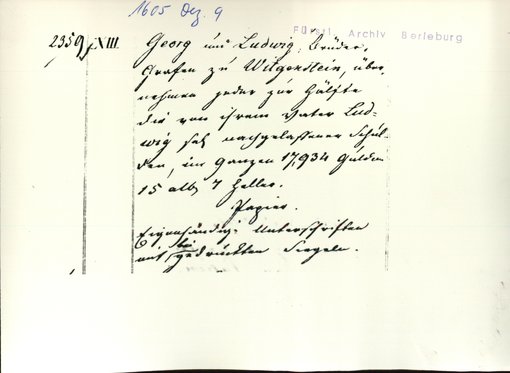 1605 Dez. 9
Fürstl. Archiv Berleburg
2359, XIII.
Georg und Ludwig, Brüder,
Grafen zu Witgenstein, über-
nehmen jeder zur Hälfte
die von ihrem Vater Lud-
wig sel. nachgelassener Schul-
den, im Ganzen 17,934 Gulden
15 alb. 7 Heller.
Papier.
Eigenhändige Unterschriften
mit bei gedrückten Siegeln.